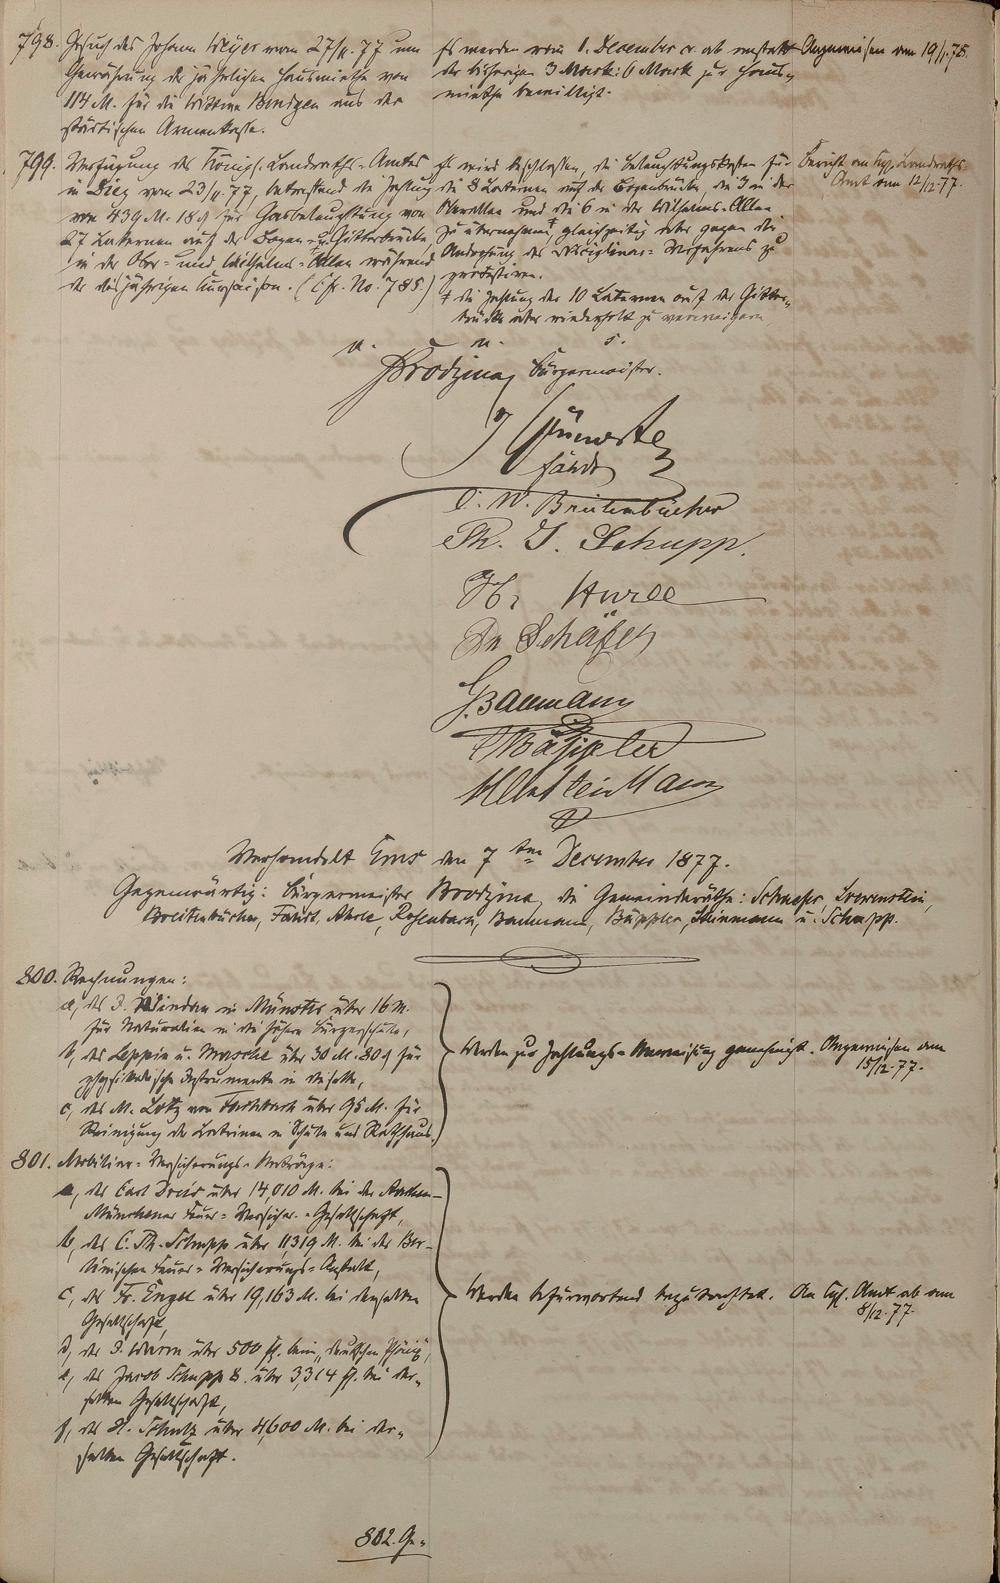 798. Gesuch des Johann Meyer vom 27/11.77 um
Gewährung der jährlichen Hausmiethe von
114 M. für die Wittwe Bindgen aus der
städtischen Armenkasse.
Es werden vom 1. December cr. ab anstatt
der bisherigen 3 Mark: 6 Mark zur Haus-
miethe bewilligt.
Angewiesen am 19/1.78.
799. Verfügung des Königl. Landraths-Amtes
in Diez vom 23/11.77, betreffend die Zahlung
von 439 M. 18 d für Gasbeleuchtung von
27 Laternen auf der Bogen- u. Gitterbrücke,
in der Ober- und Wilhelms-Allee während
der diesjährigen Kursaison. (Cfr. No. 785.)
Es wird beschlossen, die Beleuchtungskosten für
die 8 Laternen auf der Bogenbrücke, die 3 in der
Oberallee und die 6 in der Wilhelms-Allee
zu übernehmen, ‡ gleichzeitig aber gegen die
Androhung des Disciplinar-Verfahrens zu
protestiren.
‡ die Zahlung der 10 Laternen auf der Gitter-
brücke aber wiederholt zu verweigern
Bericht an Kgl. Landraths-
Amt vom 12/12.77.
v. u. s.
Brodzina, Bürgermeister.
Fandt
C. W. Breitenbücher
Ph. J. Schupp.
Dr Schäfer
G. Baumann
Bäppler
Verhandelt Ems den 7ten December 1877.
Gegenwärtig: Bürgermeister Brodzina, die Gemeinderäthe: Schaefer,
Breitenbücher, Fandt, Rosenbach, Baumann, Bäppler, Steinmann u. Schupp.
800. Rechnungen:
a, des in Münster über 16 M.
für Naturalien in die höhere Bürgerschule,
b, des Leppin u. Masche über 30 M. 80 d für
physikalische Instrumente in dieselbe,
c, des M. Lotz von Fachbach über 95 M. für
Reinigung der Latrinen in Schule und Rathhaus.
Werden zur Zahlungs-Anweisung genehmigt.
Angewiesen am
15/12.77.
801. Mobiliar-Versicherungs-Anträge:
a, des Carl über 14,010 M. bei der Aachen-
Münchener Feuer-Versicher.-Gesellschaft,
b, des C. Th. Schupp über 11319 M. bei der Ber-
linischen Feuer-Versicherungs-Anstalt,
c, des Fr. Engel über 19,163 M. bei derselben
Gesellschaft,
d, des J. Wurm über 500 fl. beim "deutschen Phönix",
e, des Jacob Schupp 8. über 3,314 fl. bei der-
selben Gesellschaft,
f, des H. Schulz über 4,600 M. bei der-
selben Gesellschaft.
Werden befürwortend begutachtet.
An Kgl. Amt ab am
8/12.77.
802. Ge-